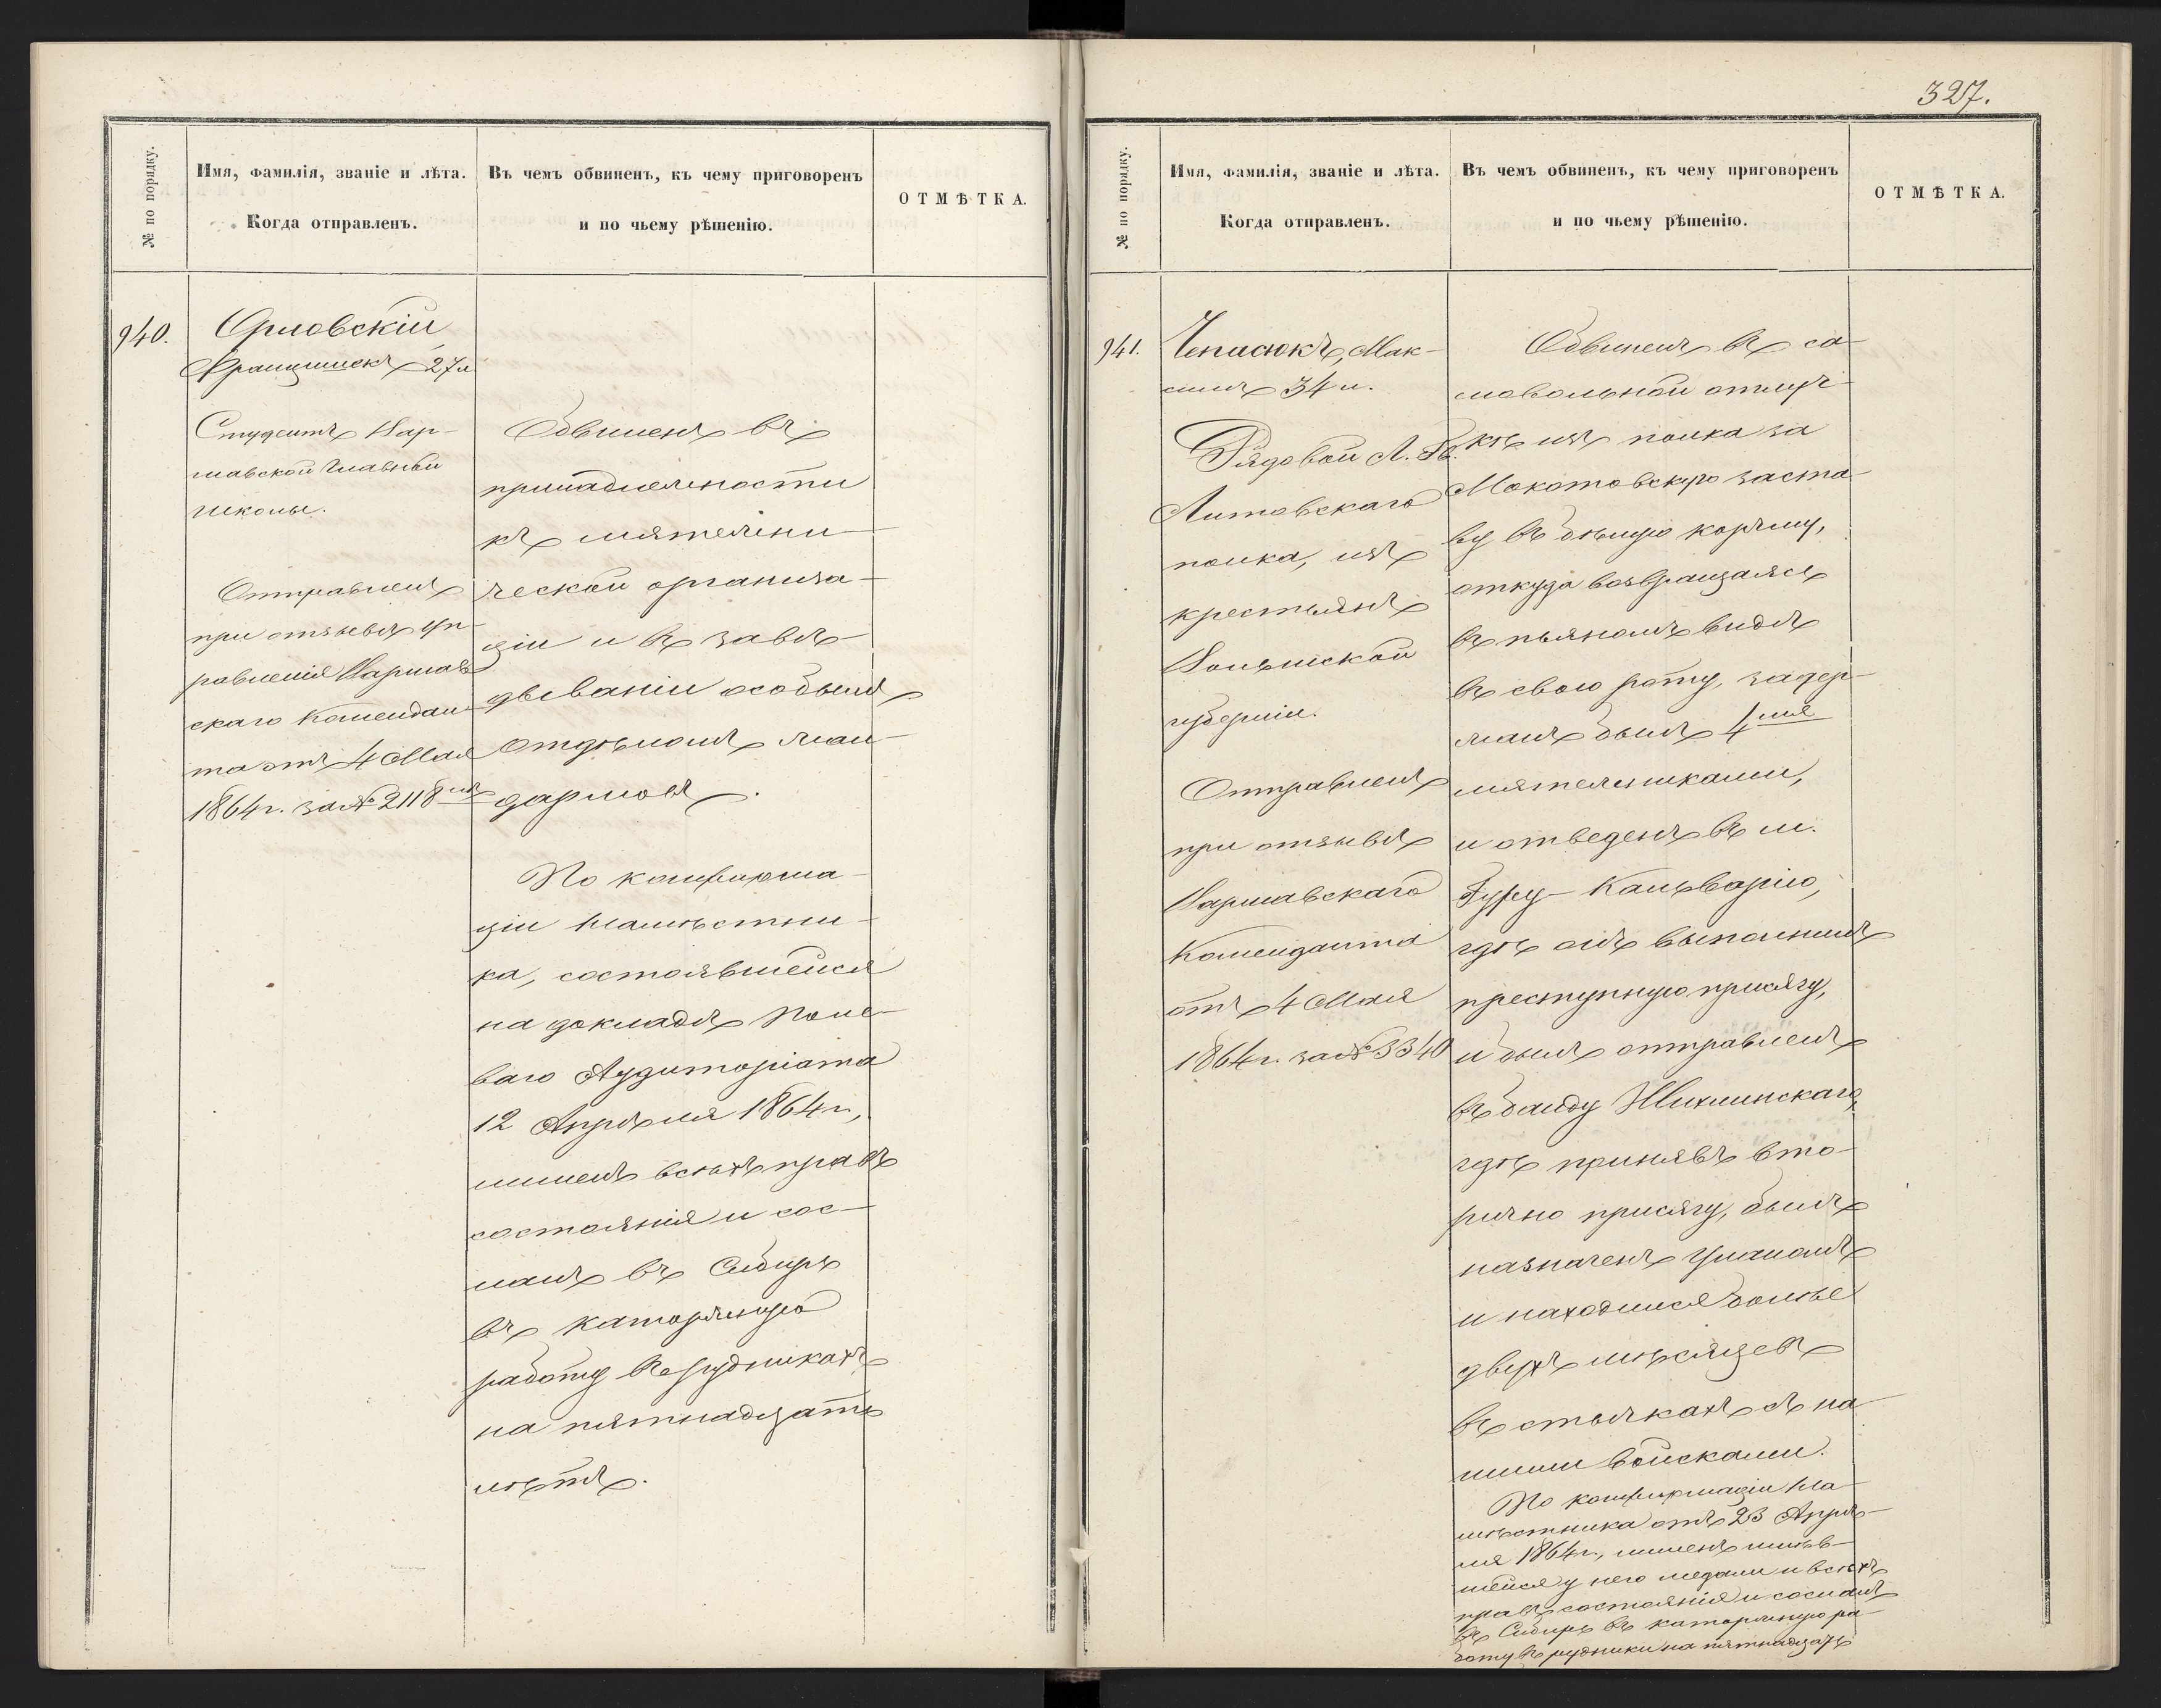 № по порядку.
Имя, фамилія, званіе и лѣта.
Когда отправленъ.
Въ чемъ обвиненъ, къ чему приговоренъ
и по чьему рѣшенію.
ОТМѢТКА.
940.
Орловскій
Францишекъ 27 л
Студентъ Вар-
шавской Главной
школы.
Отправленъ
при отзывѣ Уп-
равленія Варшав
скаго Комендан-
та отъ 4 Мая
1864 г. за № 2118
Обвиненъ въ
принадлежности
къ мятежни-
ческой организа-
ціи и въ завѣ-
дываніи особымъ
отдѣломъ жан-
дармовъ.
По конфирма-
ціи Намѣстни-
ка, состоявшейся
на докладѣ Поле-
ваго Аудиторіата
12 Апрѣля 1864 г.,
лишенъ всѣхъ правъ
состоянія и сос-
ланъ въ Сибирь
въ каторжную
работу въ рудникахъ
на пятнадцать
лѣтъ.
327.
№ по порядку.
Имя, фамилія, званіе и лѣта.
Когда отправленъ.
Въ чемъ обвиненъ, къ чему приговоренъ
и по чьему рѣшенію.
ОТМѢТКА.
941.
Мак-
симъ 34 л.
Рядовой Л. Гв.
Литовскаго
полка, изъ
крестьянъ
Волынской
губерніи.
Отправленъ
при отзывѣ
Варшавскаго
Коменданта
отъ 4 Мая
1864 г. за № 3340
Обвиненъ въ са-
мовольной отлуч-
кѣ изъ полка за
Мокотовскую заста-
ву въ бѣлую корчму,
откуда возвращаясь
въ пьяномъ видѣ
въ свою роту, задер-
жанъ былъ 4мя
мятежниками,
и отведенъ въ м.
Гуру-Кальварію,
гдѣ онъ выполнилъ
преступную присягу,
и былъ отправленъ
въ банду Жихлинскаго,
гдѣ принявъ вто-
рично присягу, былъ
назначенъ уланомъ
и находился болѣе
двухъ мѣсяцевъ
въ стычкахъ съ на-
шими войсками.
По конфирмаціи На-
мѣстника отъ 23 Апрѣ-
ля 1864 г., лишенъ имѣв-
шейся у него медали и всѣхъ
правъ состоянія и сосланъ
въ Сибирь въ каторжную ра-
боту въ рудники на пятнадцать